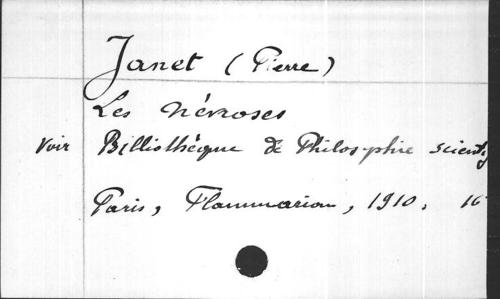 Janet (Pierre)
Les Névroses
Voir Bibliothèque de Philosophie scientif
Paris, Flammarion, 1910. 16